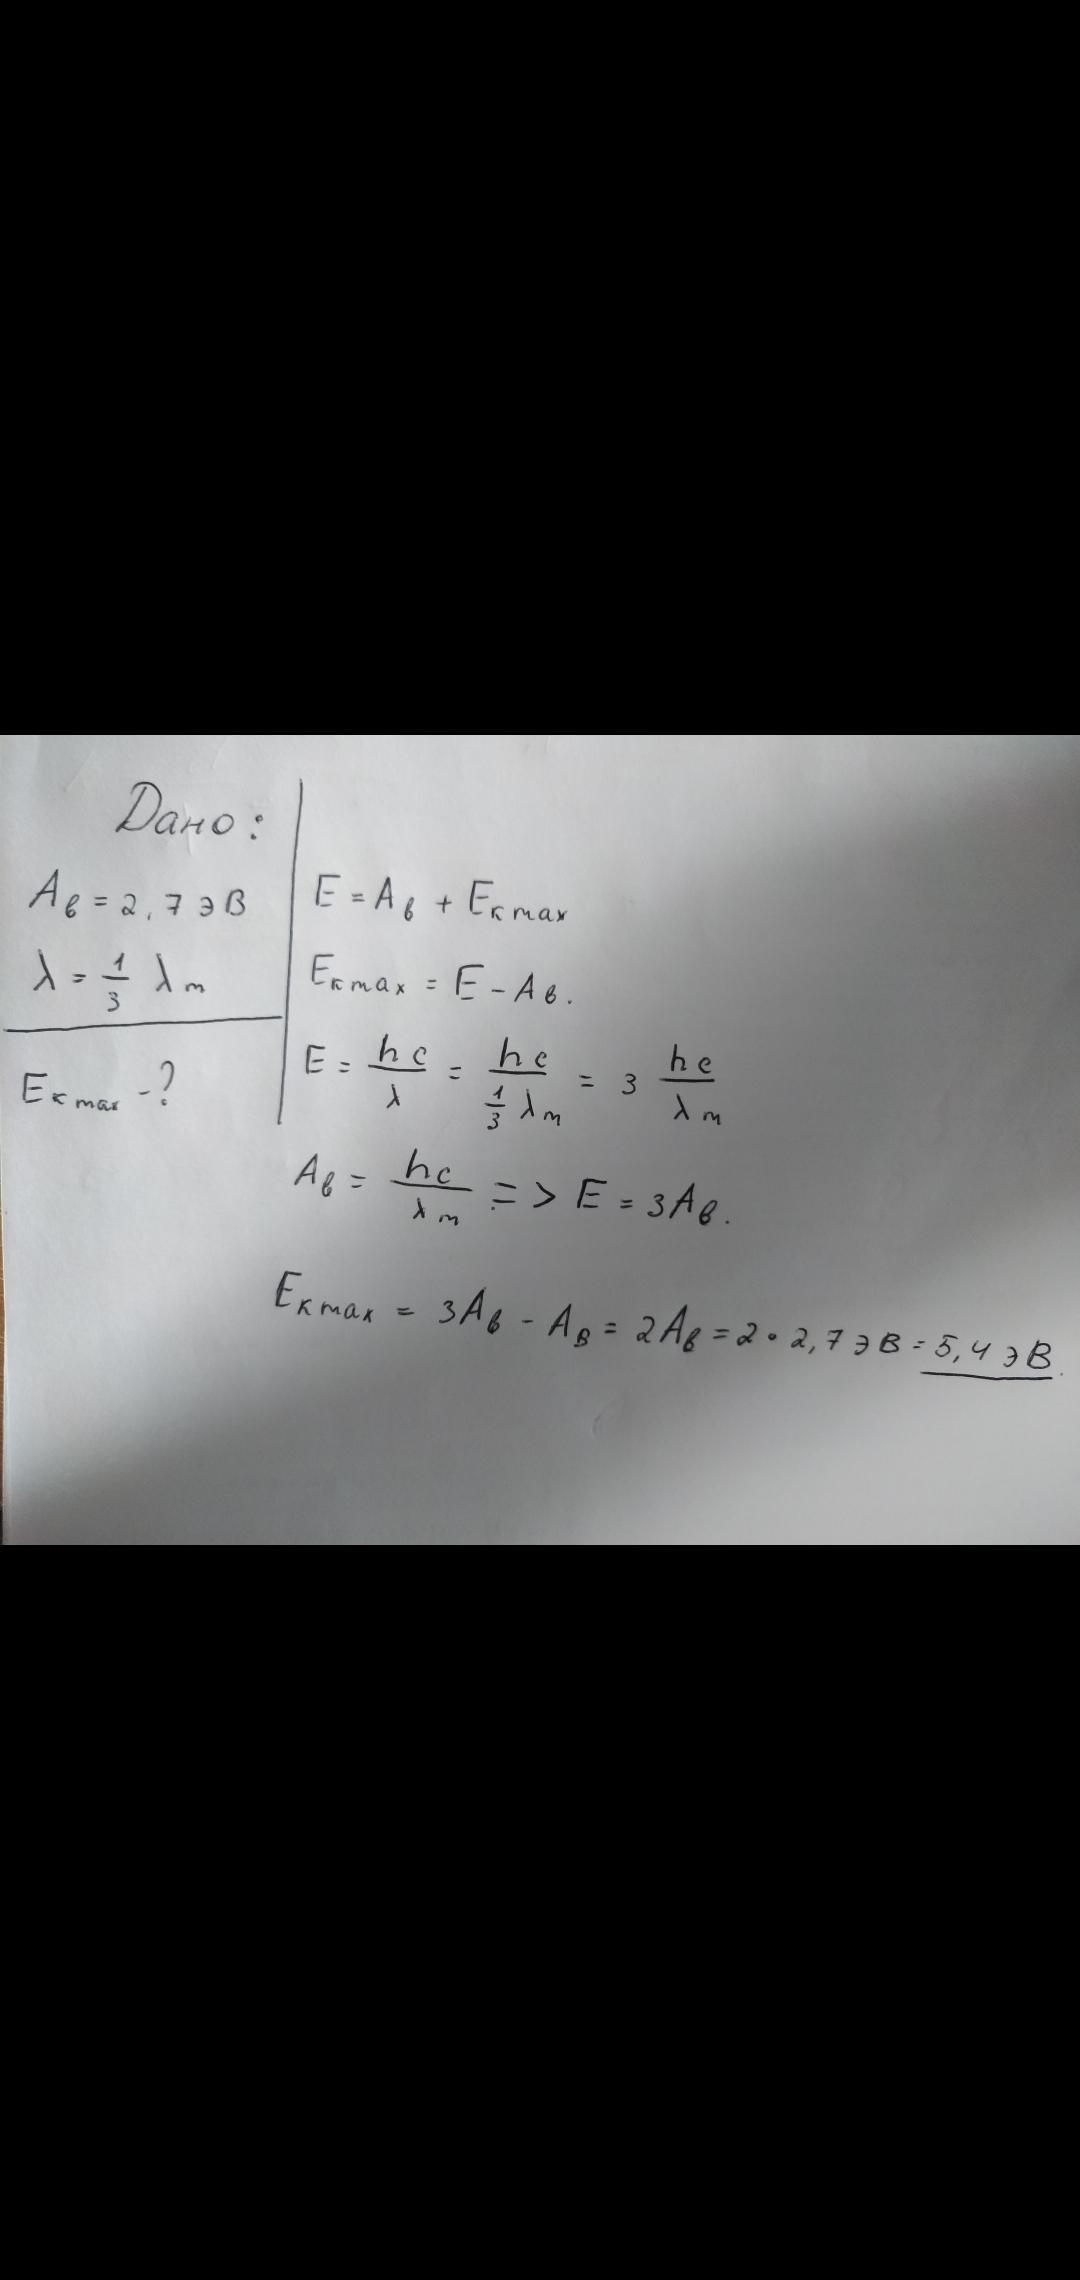 Дано:
Aв = 2,7 эВ
λ = 1/3 λm
Eк max - ?
E = Aв + Eк max
Eк max = E - Aв.
E = hc/λ = hc/(1/3 λm) = 3 hc/λm
Aв = hc/λm => E = 3Aв.
Eк max = 3Aв - Aв = 2Aв = 2 • 2,7 эВ = 5,4 эВ